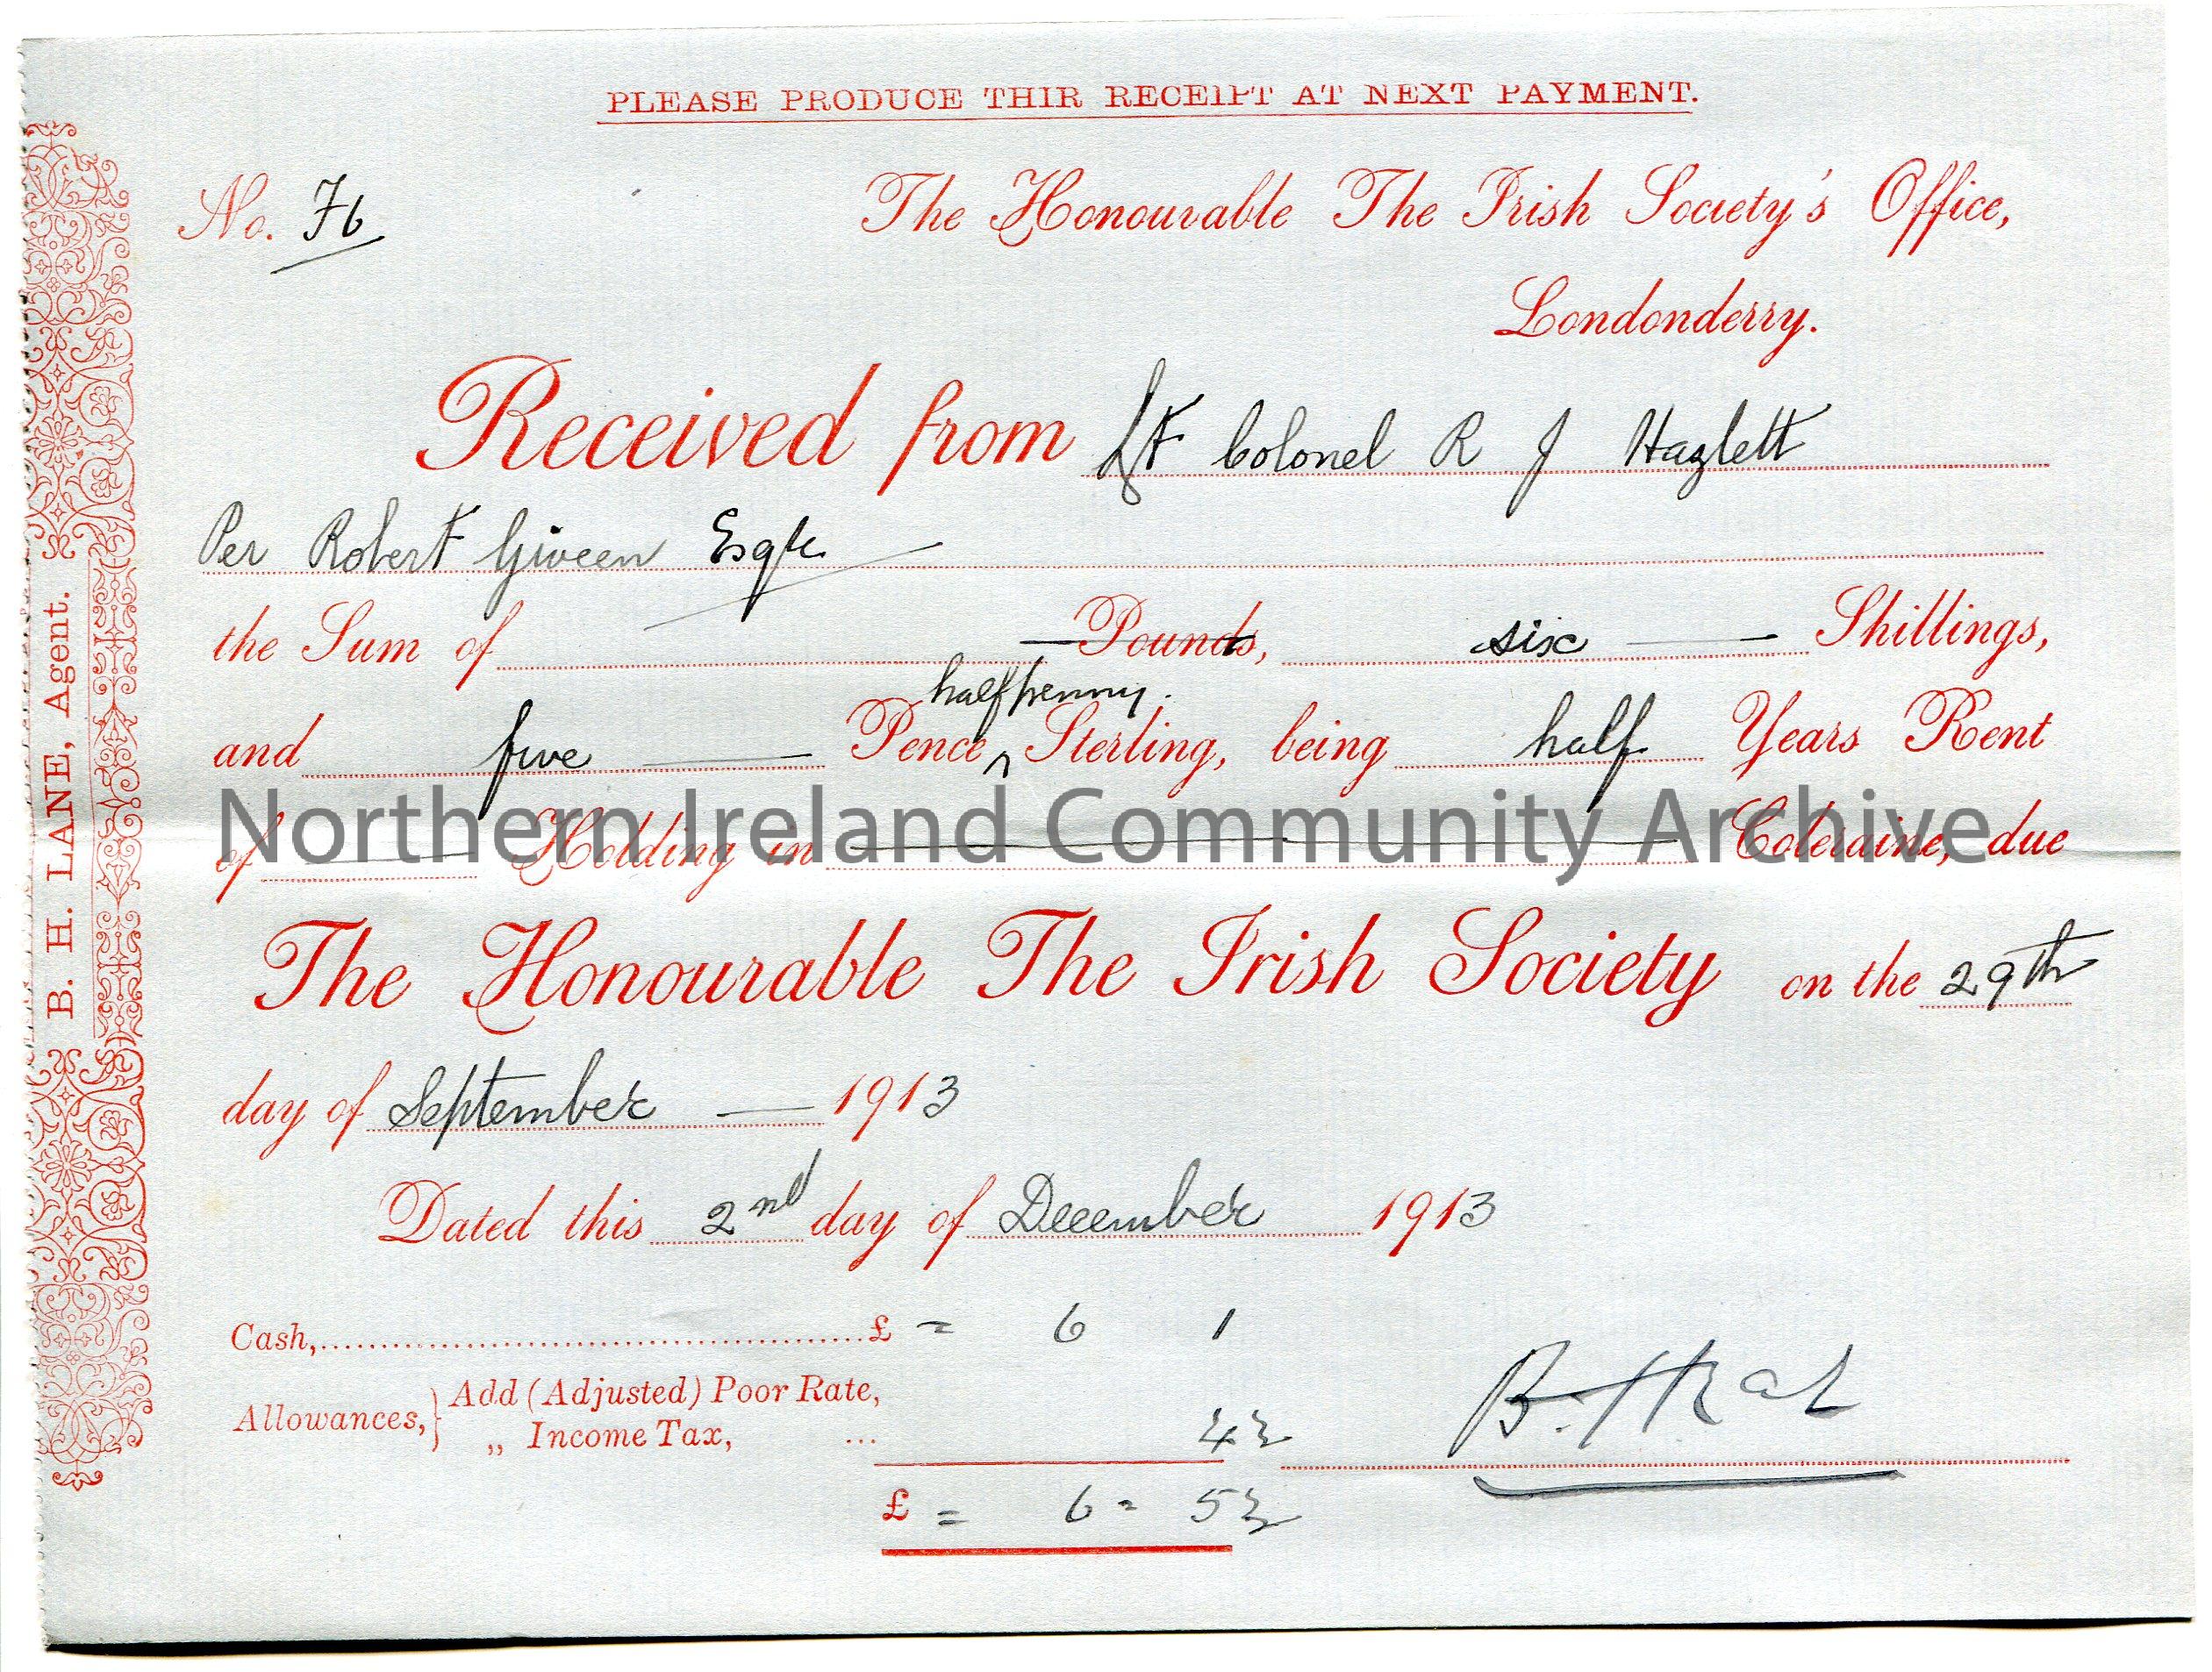 PLEASE PRODUCE THIR RECEIPT AT NEXT PAYMENT.
No. 76
The Honourable The Irish Society's Office,
Londonderry.
Received from Lt Colonel R J Hazlett
Per Robert Giveen Esqre
the Sum of Pounds, six Shillings,
halfpenny.
and five Pence ^ Sterling, being half Years Rent
of Holding in Coleraine, due
Northern Ireland Community Archive
The Honourable The Irish Society on the 29th
day of September 1913
Dated this 2nd day of December 1913
Cash, £ = 6 1
Allowances, } Add (Adjusted) Poor Rate,
„ Income Tax, ... 4½
£ = 6 = 5½
B. H. LANE, Agent.